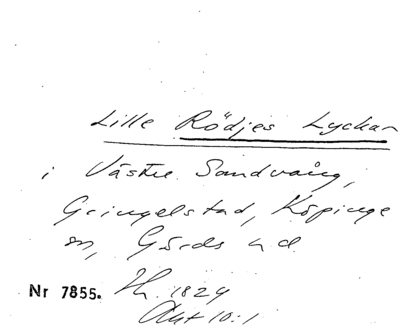 Lille Rödjes Lyckan
i Västre Sandvång,
Gringelstad, Köpinge
sn, Gärds hd.
Nr 7855. 1824
Akt 10:1